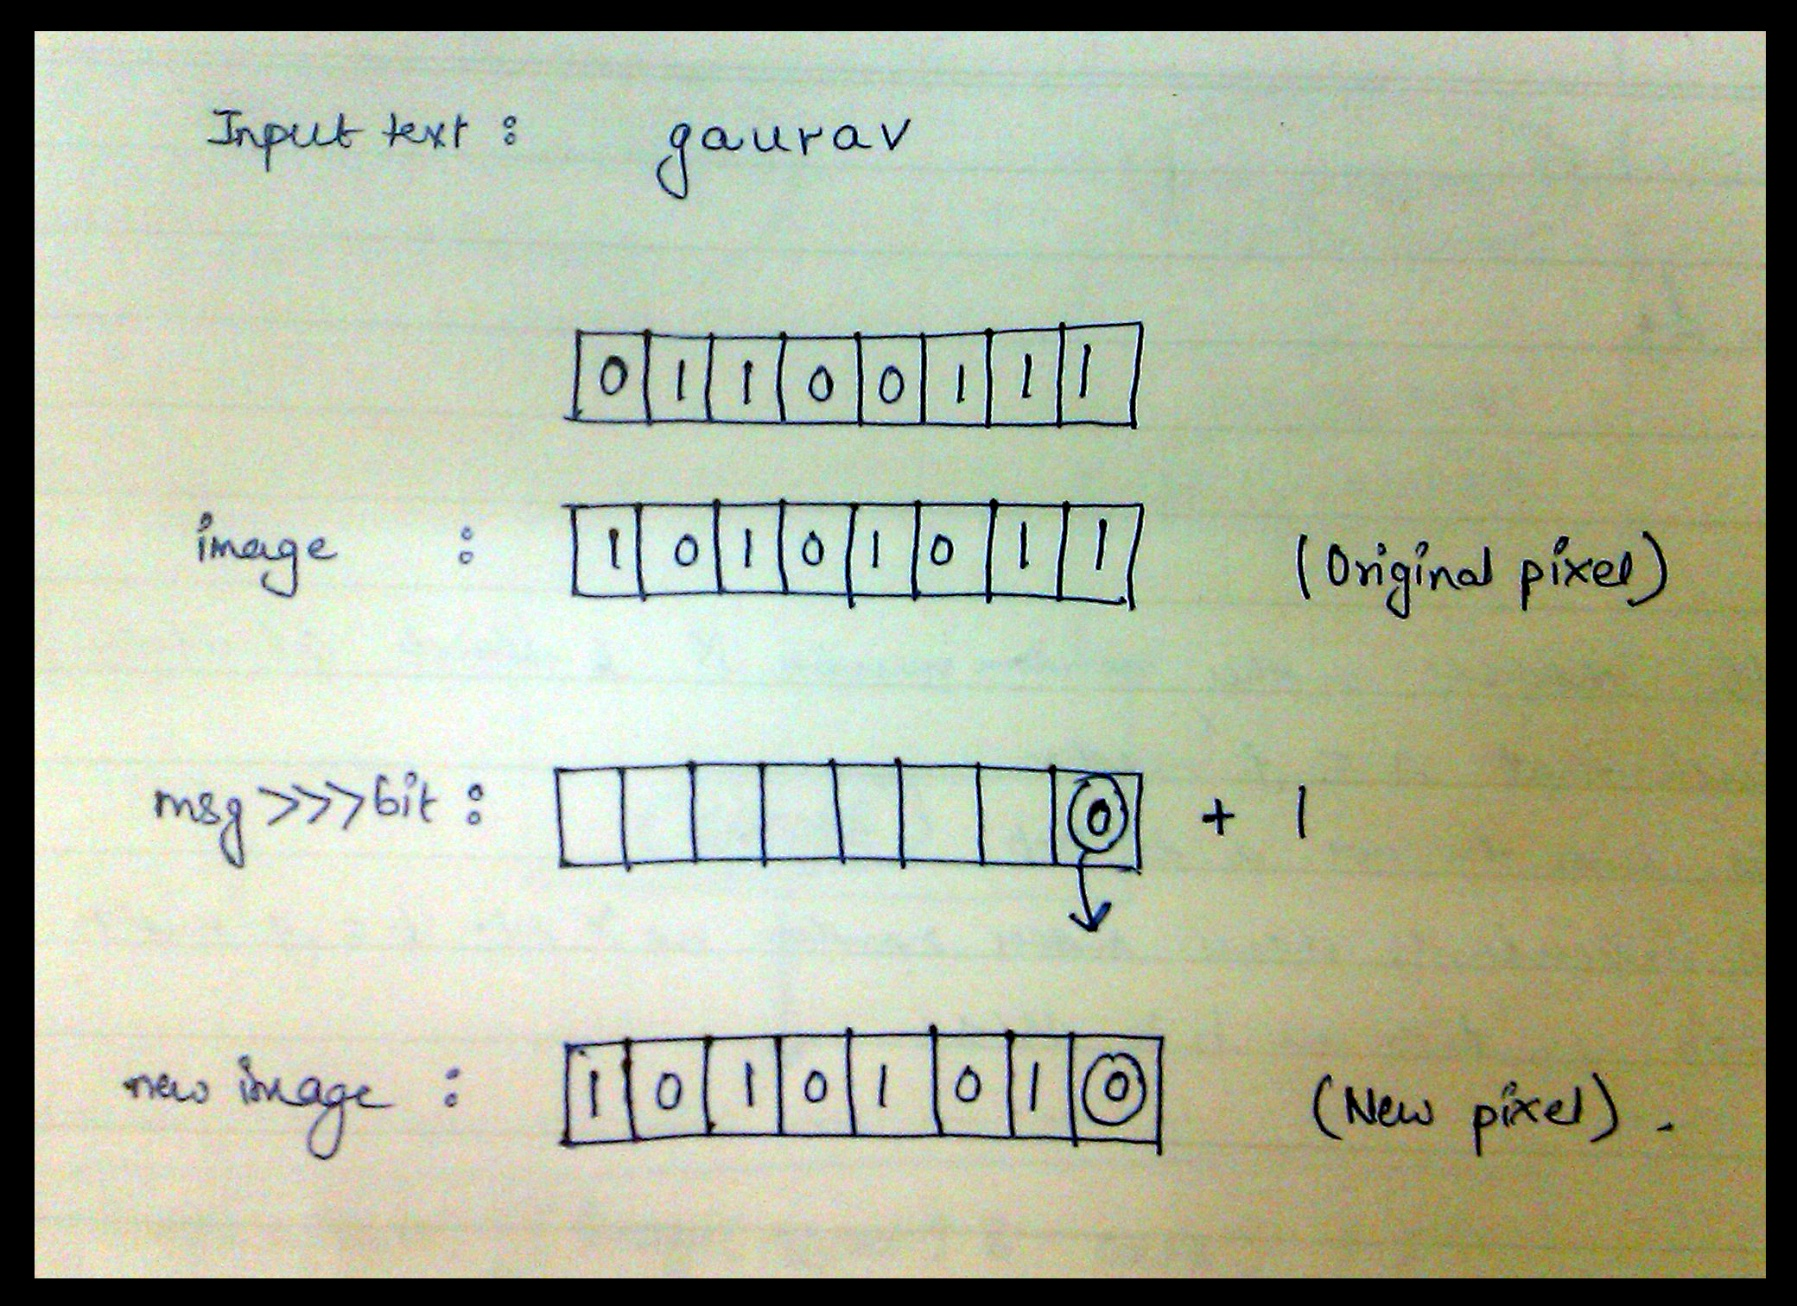 Input text : gaurav
0 1 1 0 0 1 1 1
image : 1 0 1 0 1 0 1 1 (Original pixel)
msg >>> bit : 0 + 1
new image : 1 0 1 0 1 0 1 0 (New pixel) .